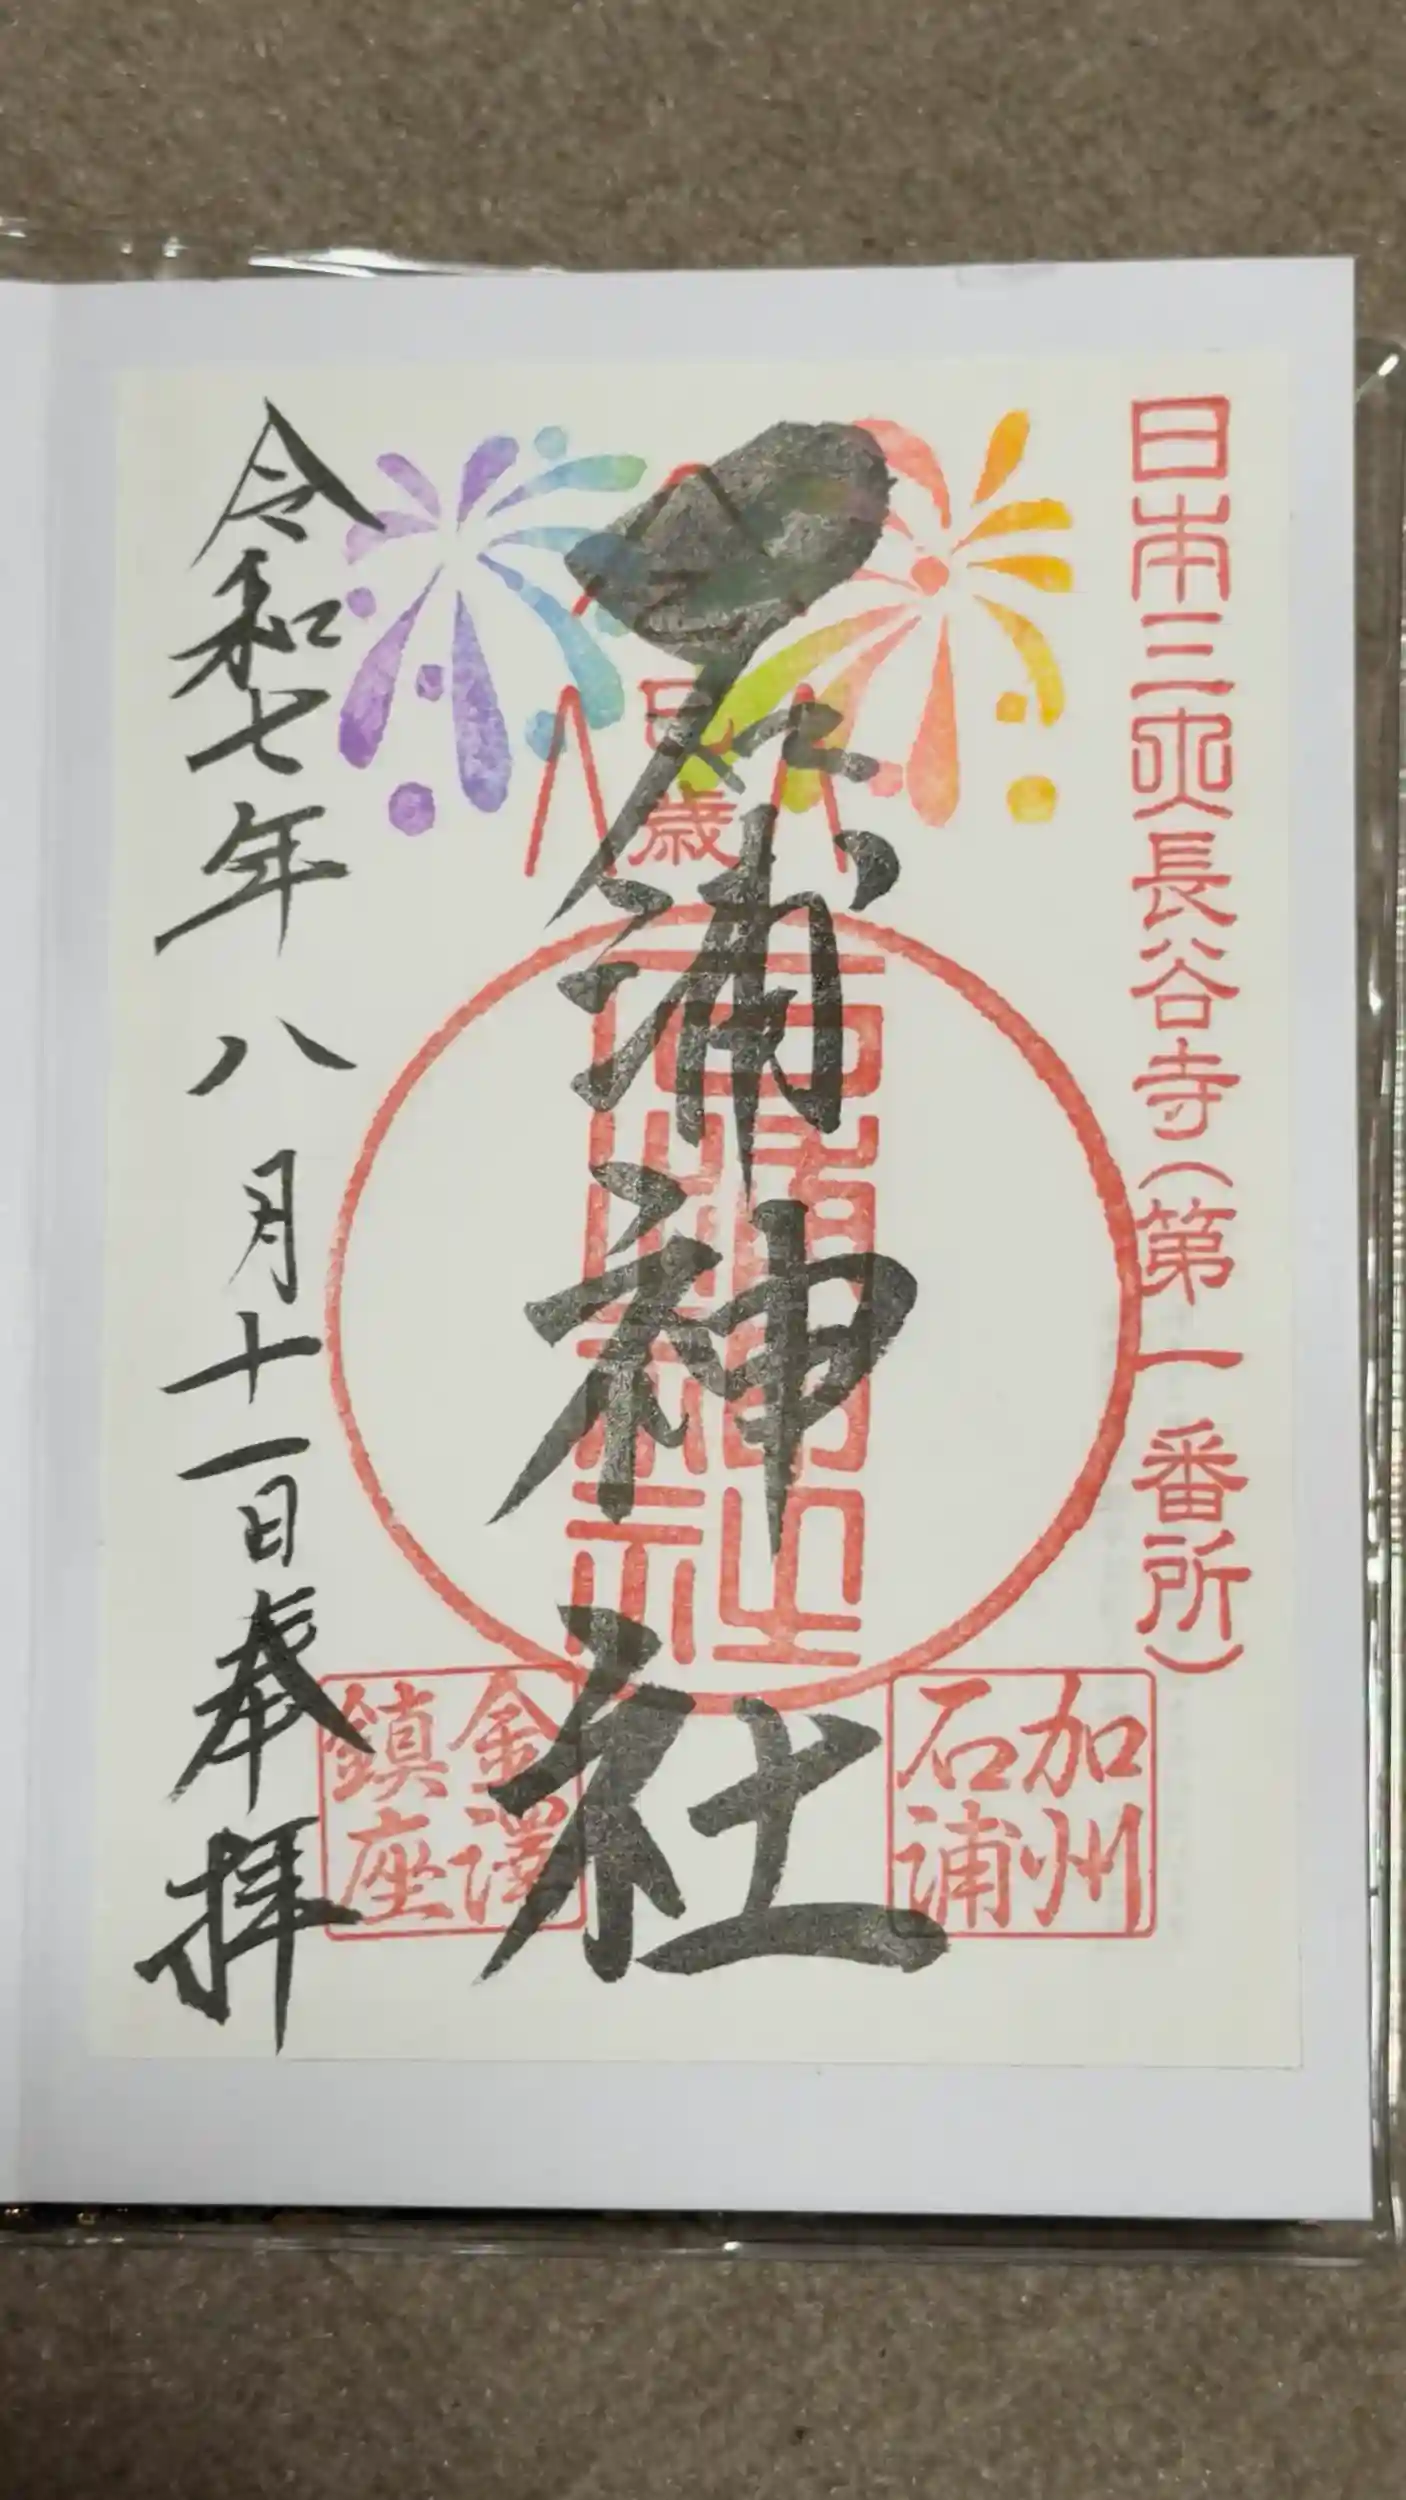 日本三大長谷寺(第一番所)
加州
石浦
巳歳
石浦神社
石浦神社
金澤
鎮座
令和七年八月十一日奉拝